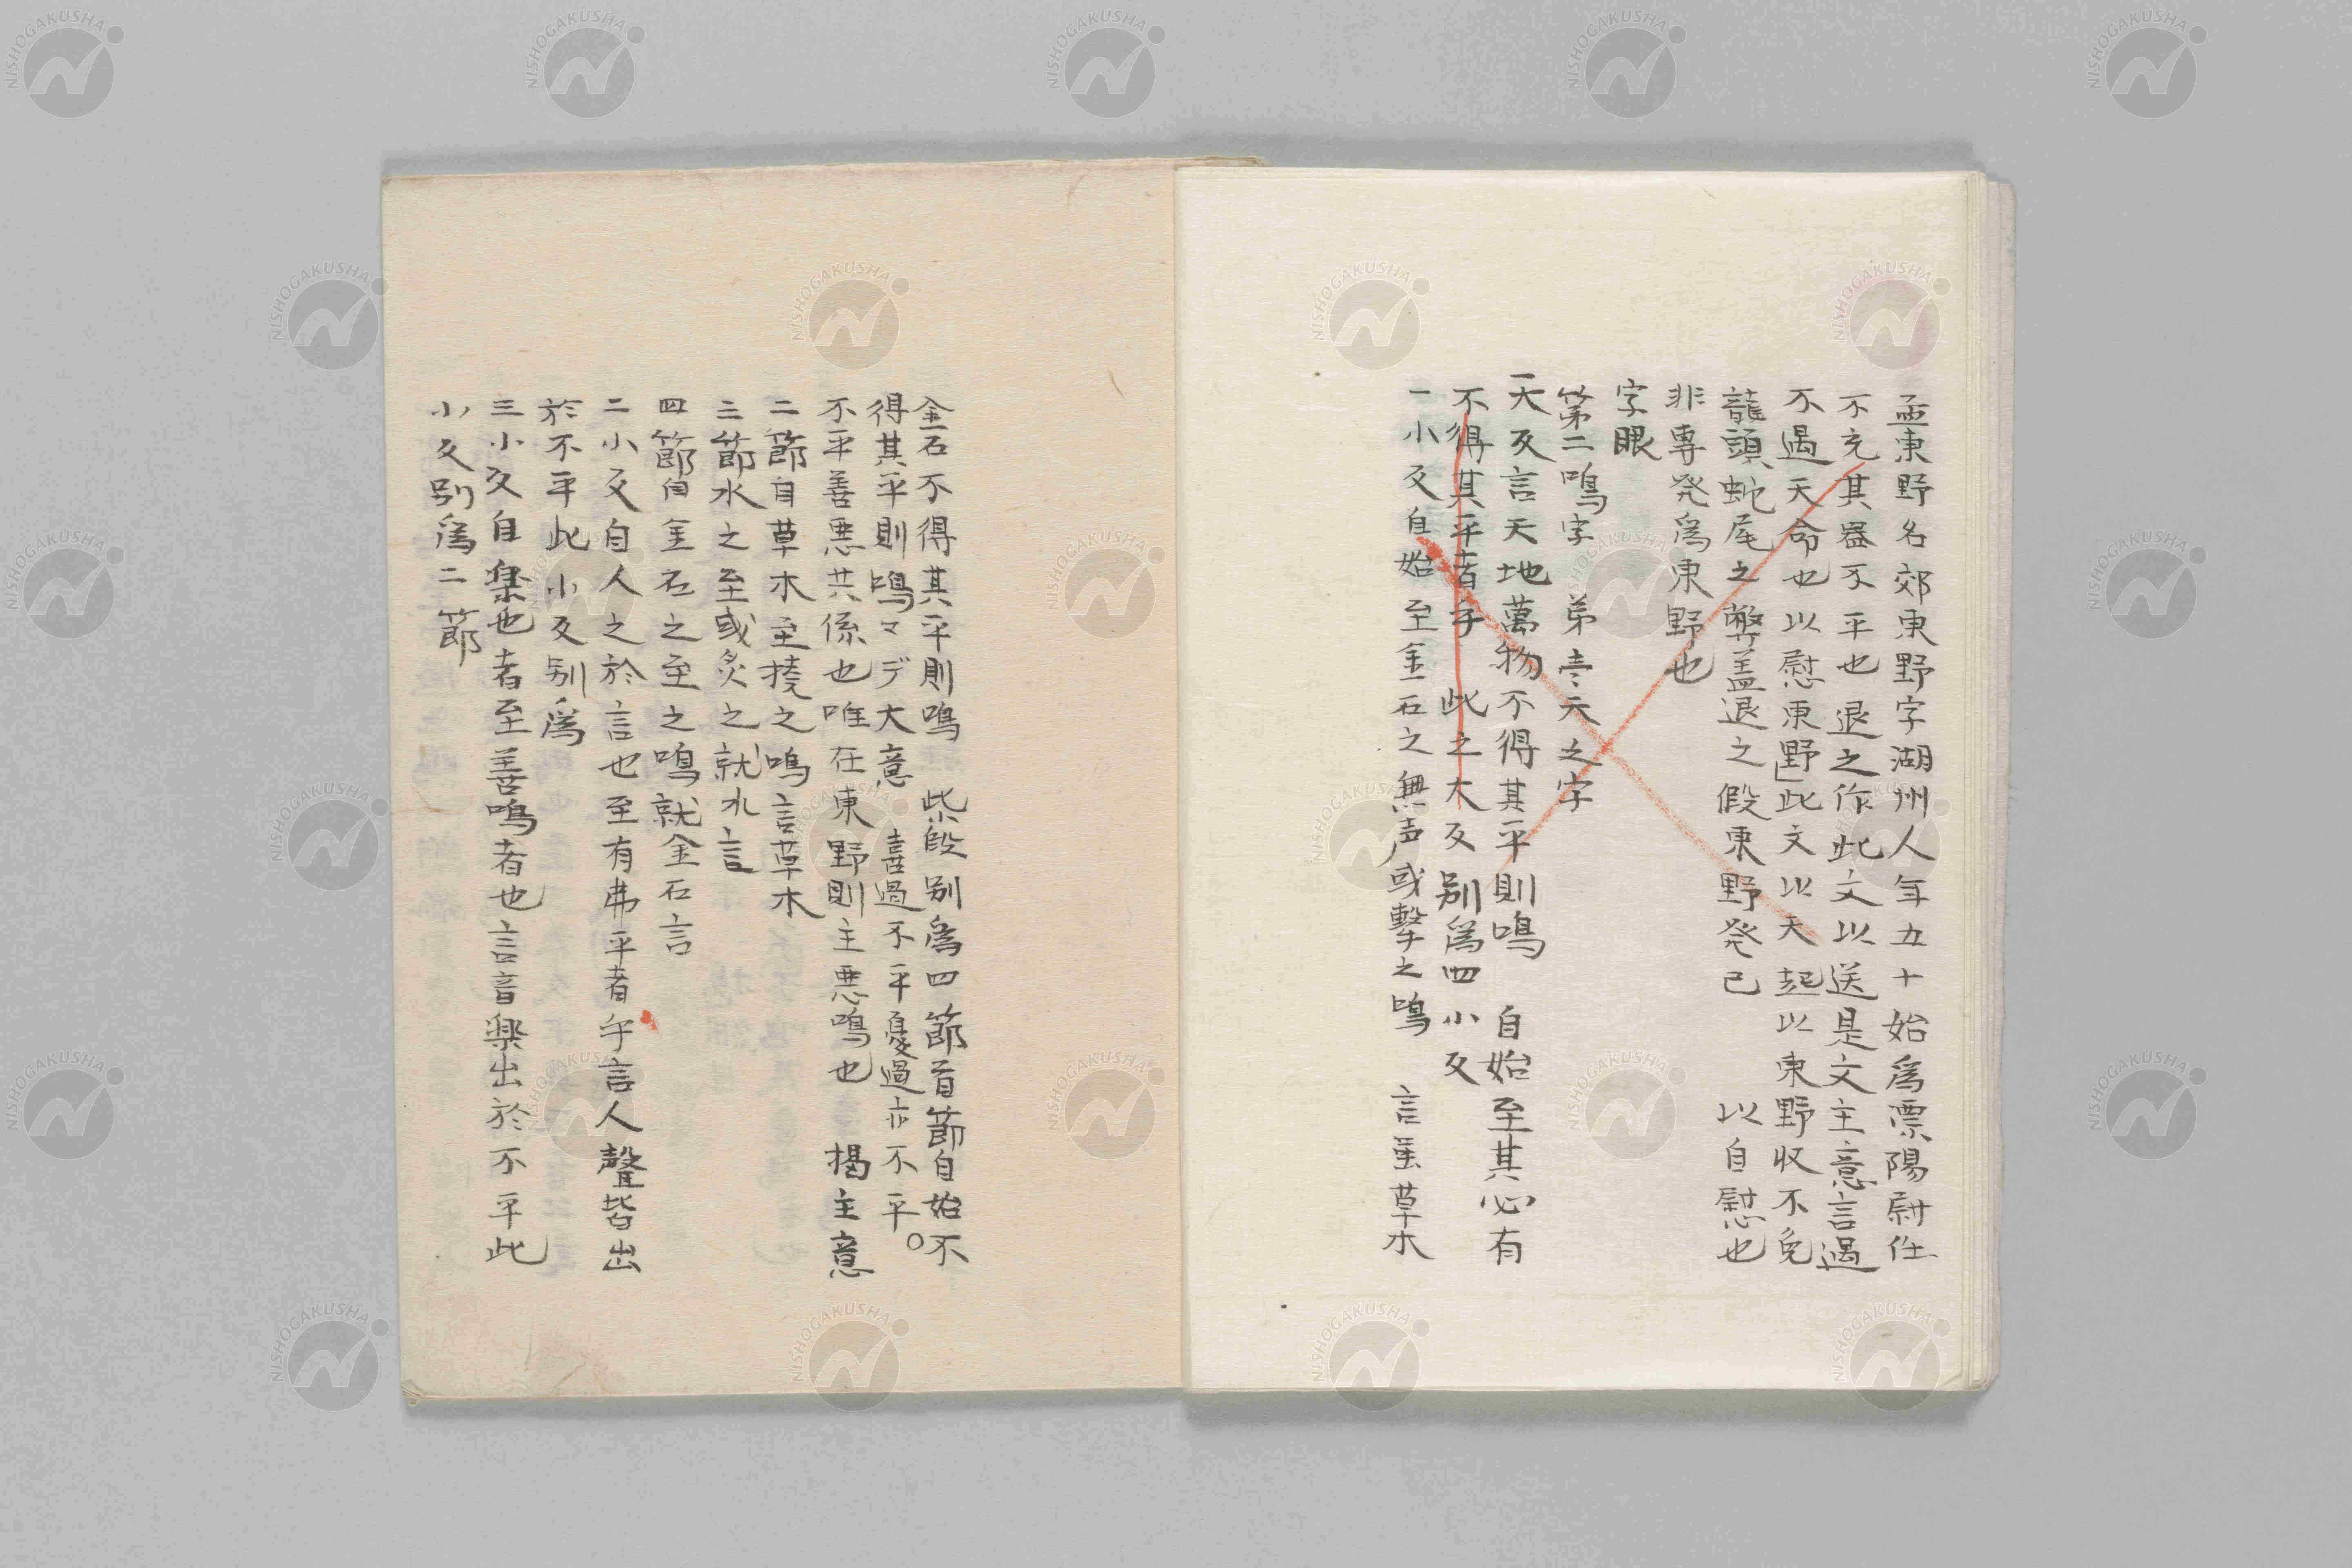 孟東野名郊東野字湖州人年五十始爲漂陽尉任
不充其器不平也退之作此文以送是文主意言遇
不遇天命也以慰東野」此文以天起以東野収不免
龍頭蛇尾之弊盖退之假東野発己　以自慰也
非専発爲東野也
字眼
第二鳴字　弟壱天之字
一大反言天地萬物不得其平則鳴　自始至其必有
不得其平者乎　此之大反別爲四小反
一小反自始至金石之無声或撃之鳴　言虽草木
金石不得其平則鳴　此段別爲四節首節自始不
得其平則鳴マデ大意　喜過不平憂過亦不平。
不平善悪共係也唯在東野則主悪鳴也　揭主意
二節自草木至撓之鳴言草木
三節水之至或炙之就水言
四節自金石之至之鳴就金石言
二小反自人之於言也至有弗平者乎言人聲皆出
於不平此小反別爲
三小反自楽也者至善鳴者也言音樂出於不平此
小反別爲二節
NISHOGAKUSHA